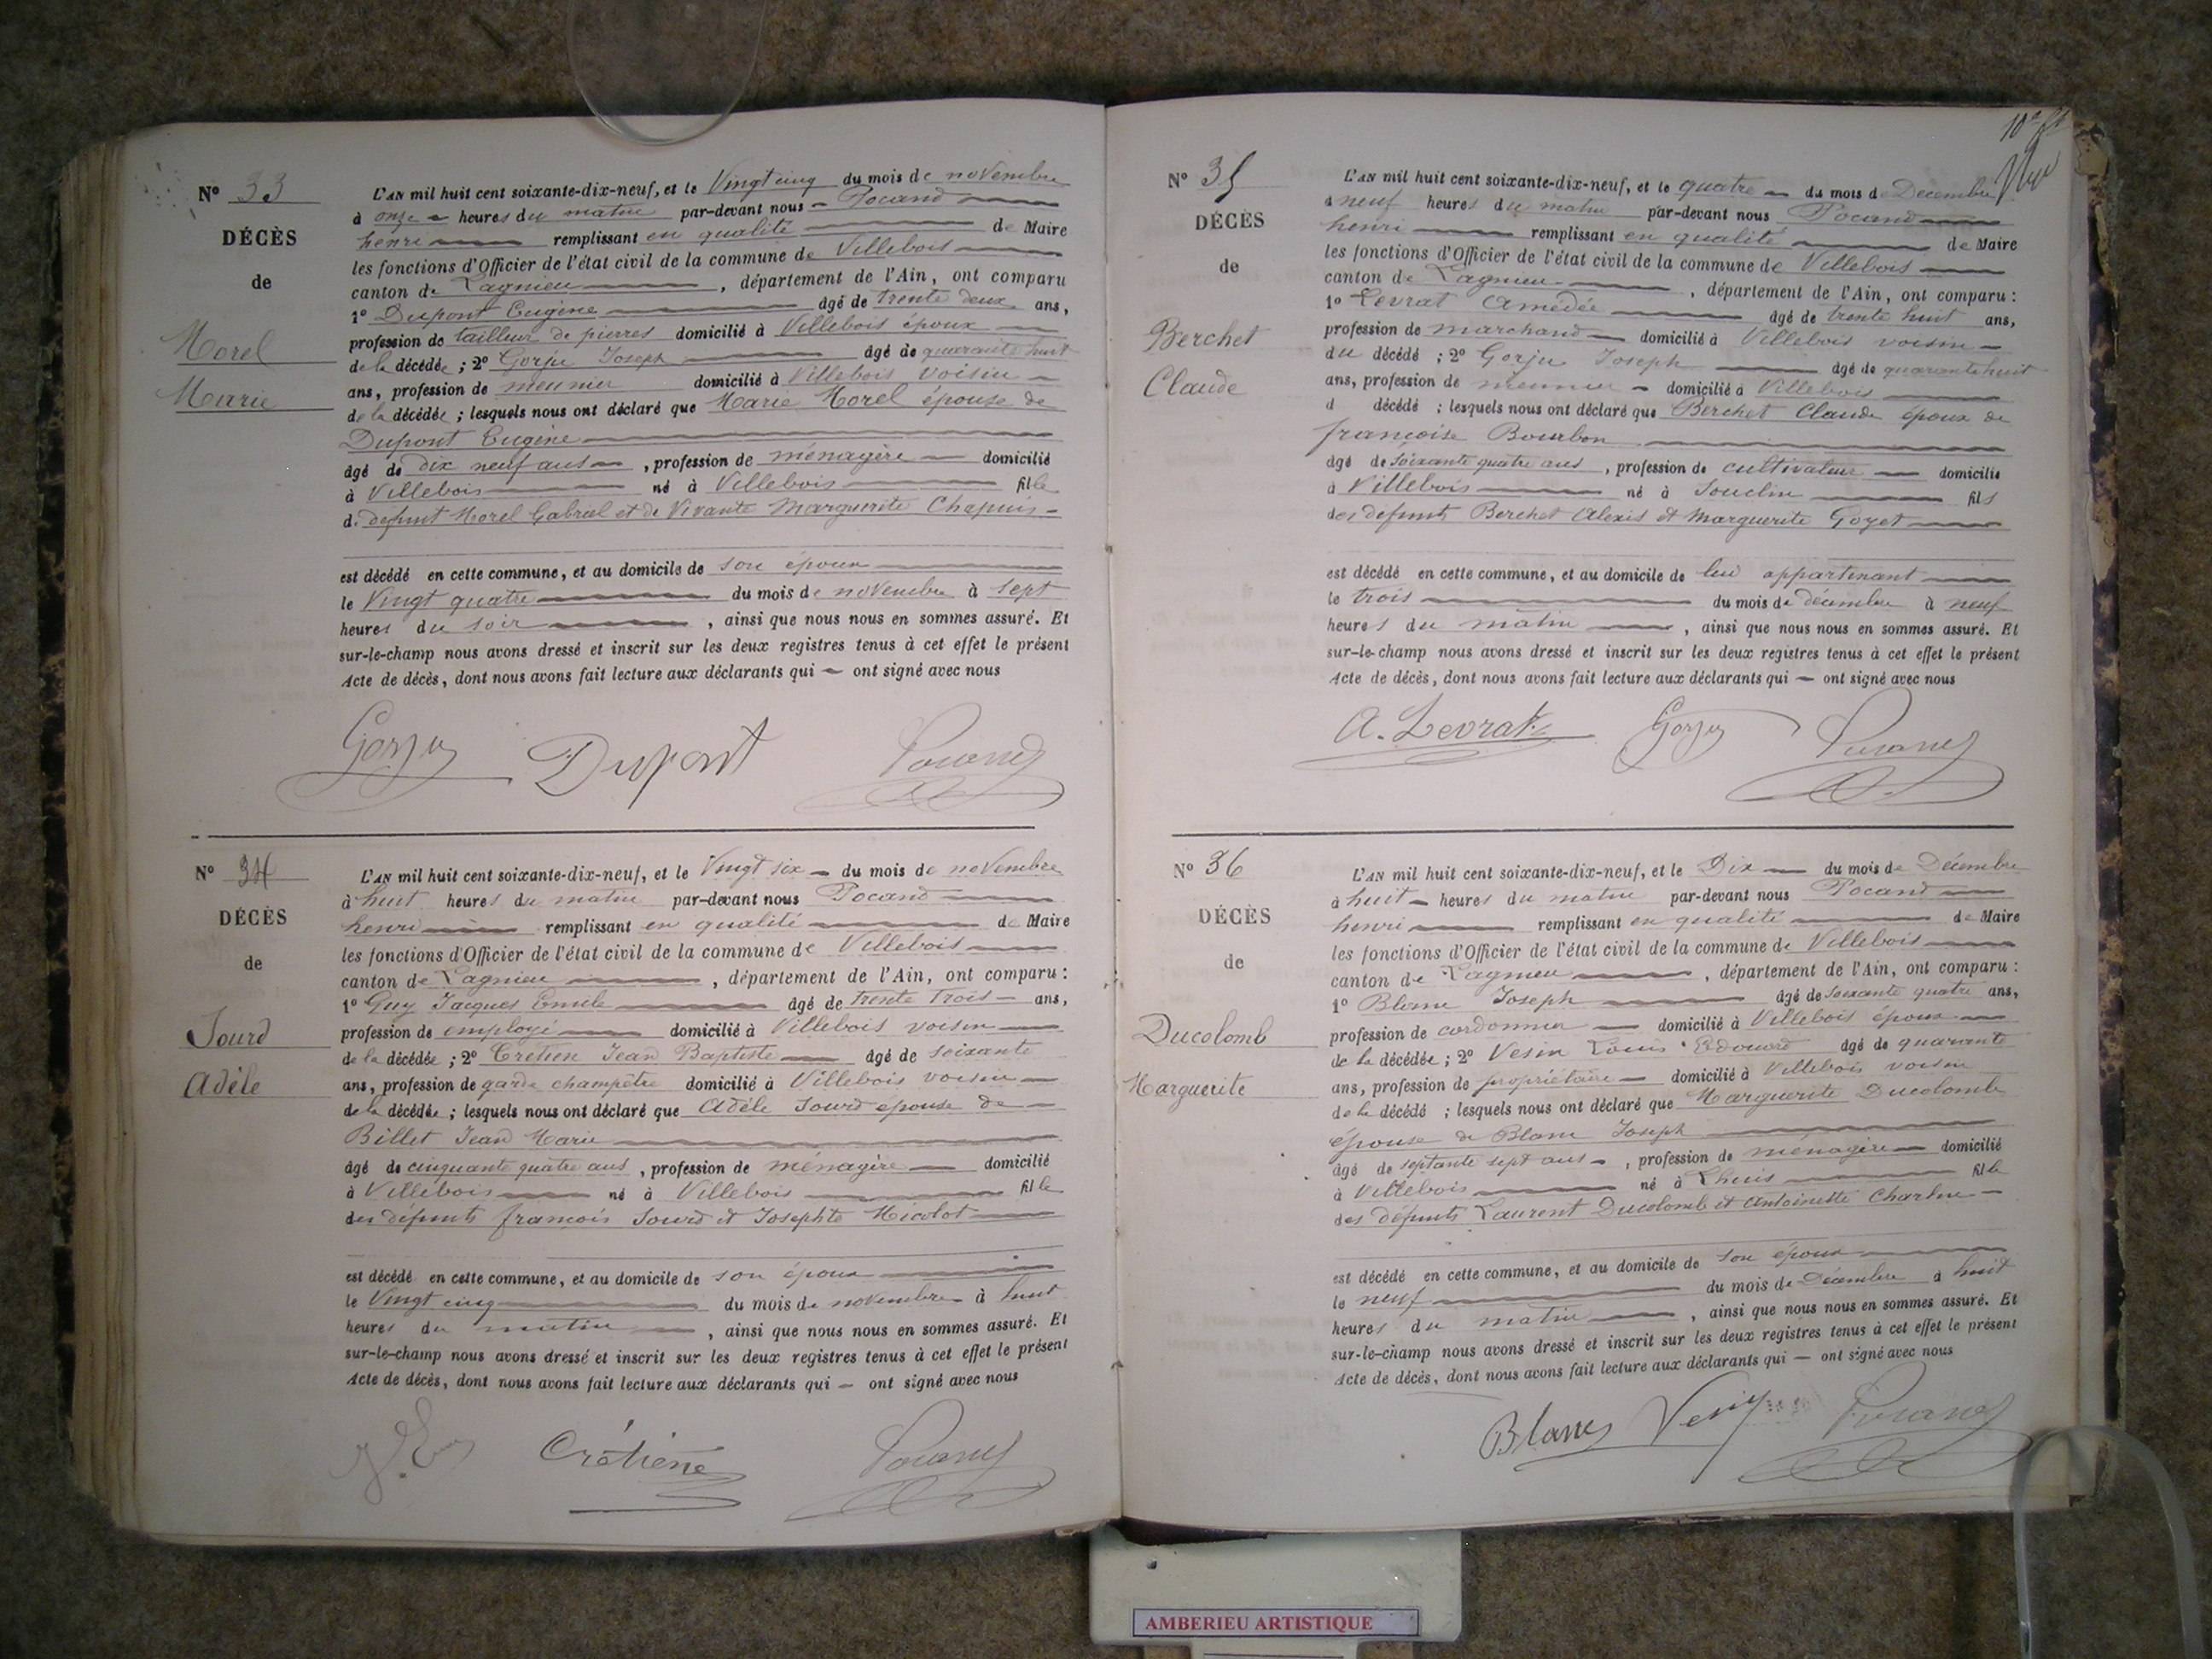 N° 33
DÉCÈS
de
Morel
Marie
L'AN mil huit cent soixante-dix-neuf, et le Vingt cinq du mois de novembre
à onze heures du matin par-devant nous Pocand
henri remplissant en qualité de Maire
les fonctions d'Officier de l'état civil de la commune de Villebois
canton de Lagnieu, département de l'Ain, ont comparu
1° Dupont Eugène âgé de trente deux ans,
profession de tailleur de pierres domicilié à Villebois époux
de la décédée ; 2° Gorju Joseph âgé de quarante huit
ans, profession de meunier domicilié à Villebois voisin
de la décédée ; lesquels nous ont déclaré que Marie Morel épouse de
Dupont Eugène
âgé de dix neuf ans, profession de ménagère domicilié
à Villebois né à Villebois fille
de defunt Morel Gabriel et de Vivante Marguerite Chapuis
est décédé en cette commune, et au domicile de son époux
le Vingt quatre du mois de novembre à sept
heures du soir, ainsi que nous nous en sommes assuré. Et
sur-le-champ nous avons dressé et inscrit sur les deux registres tenus à cet effet le présent
Acte de décès, dont nous avons fait lecture aux déclarants qui — ont signé avec nous
Gorju Dupont Pocand
N° 34
DÉCÈS
de
Sourd
Adèle
L'AN mil huit cent soixante-dix-neuf, et le Vingt six du mois de novembre
à huit heures du matin par-devant nous Pocand
henri remplissant en qualité de Maire
les fonctions d'Officier de l'état civil de la commune de Villebois
canton de Lagnieu, département de l'Ain, ont comparu :
1° Guy Jacques Emile âgé de trente trois ans,
profession de employé domicilié à Villebois voisin
de la décédée ; 2° Crétien Jean Baptiste âgé de soixante
ans, profession de garde champêtre domicilié à Villebois voisin
de la décédée ; lesquels nous ont déclaré que Adèle Sourd épouse de
Billet Jean Marie
âgé de cinquante quatre ans, profession de ménagère domicilié
à Villebois né à Villebois fille
des défunts françois Sourd et Josephte Micolot
est décédé en cette commune, et au domicile de son époux
le Vingt cinq du mois de novembre à huit
heures du matin, ainsi que nous nous en sommes assuré. Et
sur-le-champ nous avons dressé et inscrit sur les deux registres tenus à cet effet le présent
Acte de décès, dont nous avons fait lecture aux déclarants qui — ont signé avec nous
Crétiene Pocand
N° 35
DÉCÈS
de
Berchet
Claude
L'AN mil huit cent soixante-dix-neuf, et le quatre du mois de Decembre
à neuf heures du matin par-devant nous Pocand
henri remplissant en qualité de Maire
les fonctions d'Officier de l'état civil de la commune de Villebois
canton de Lagnieu, département de l'Ain, ont comparu :
1° Levrat Amédée âgé de trente huit ans,
profession de marchand domicilié à Villebois voisin
du décédé ; 2° Gorju Joseph âgé de quarante huit
ans, profession de meunier domicilié à Villebois
d décédé ; lesquels nous ont déclaré que Berchet Claude époux de
françoise Bourbon
âgé de soixante quatre ans, profession de cultivateur domicilié
à Villebois né à Souclin fils
des defunts Berchet Alexis et Marguerite Goyet
est décédé en cette commune, et au domicile de lui appartenant
le trois du mois de décembre à neuf
heures du matin, ainsi que nous nous en sommes assuré. Et
sur-le-champ nous avons dressé et inscrit sur les deux registres tenus à cet effet le présent
Acte de décès, dont nous avons fait lecture aux déclarants qui — ont signé avec nous
A. Levrat Gorju Pocand
N° 36
DÉCÈS
de
Ducolomb
Marguerite
L'AN mil huit cent soixante-dix-neuf, et le Dix du mois de Décembre
à huit heures du matin par-devant nous Pocand
henri remplissant en qualité de Maire
les fonctions d'Officier de l'état civil de la commune de Villebois
canton de Lagnieu, département de l'Ain, ont comparu :
1° Blanc Joseph âgé de soixante quatre ans,
profession de cordonnier domicilié à Villebois époux
de la décédée ; 2° Vesin Louis Edouard âgé de quarante
ans, profession de propriétaire domicilié à Villebois voisin
de la décédé ; lesquels nous ont déclaré que Marguerite Ducolomb
épouse de Blanc Joseph
âgé de septante sept ans, profession de ménagère domicilié
à Villebois né à Lhuis fille
des défunts Laurent Ducolomb et Antoinette
est décédé en cette commune, et au domicile de son époux
le neuf du mois de Décembre à huit
heures du matin, ainsi que nous nous en sommes assuré. Et
sur-le-champ nous avons dressé et inscrit sur les deux registres tenus à cet effet le présent
Acte de décès, dont nous avons fait lecture aux déclarants qui — ont signé avec nous
Blanc Vesin Pocand
AMBERIEU ARTISTIQUE